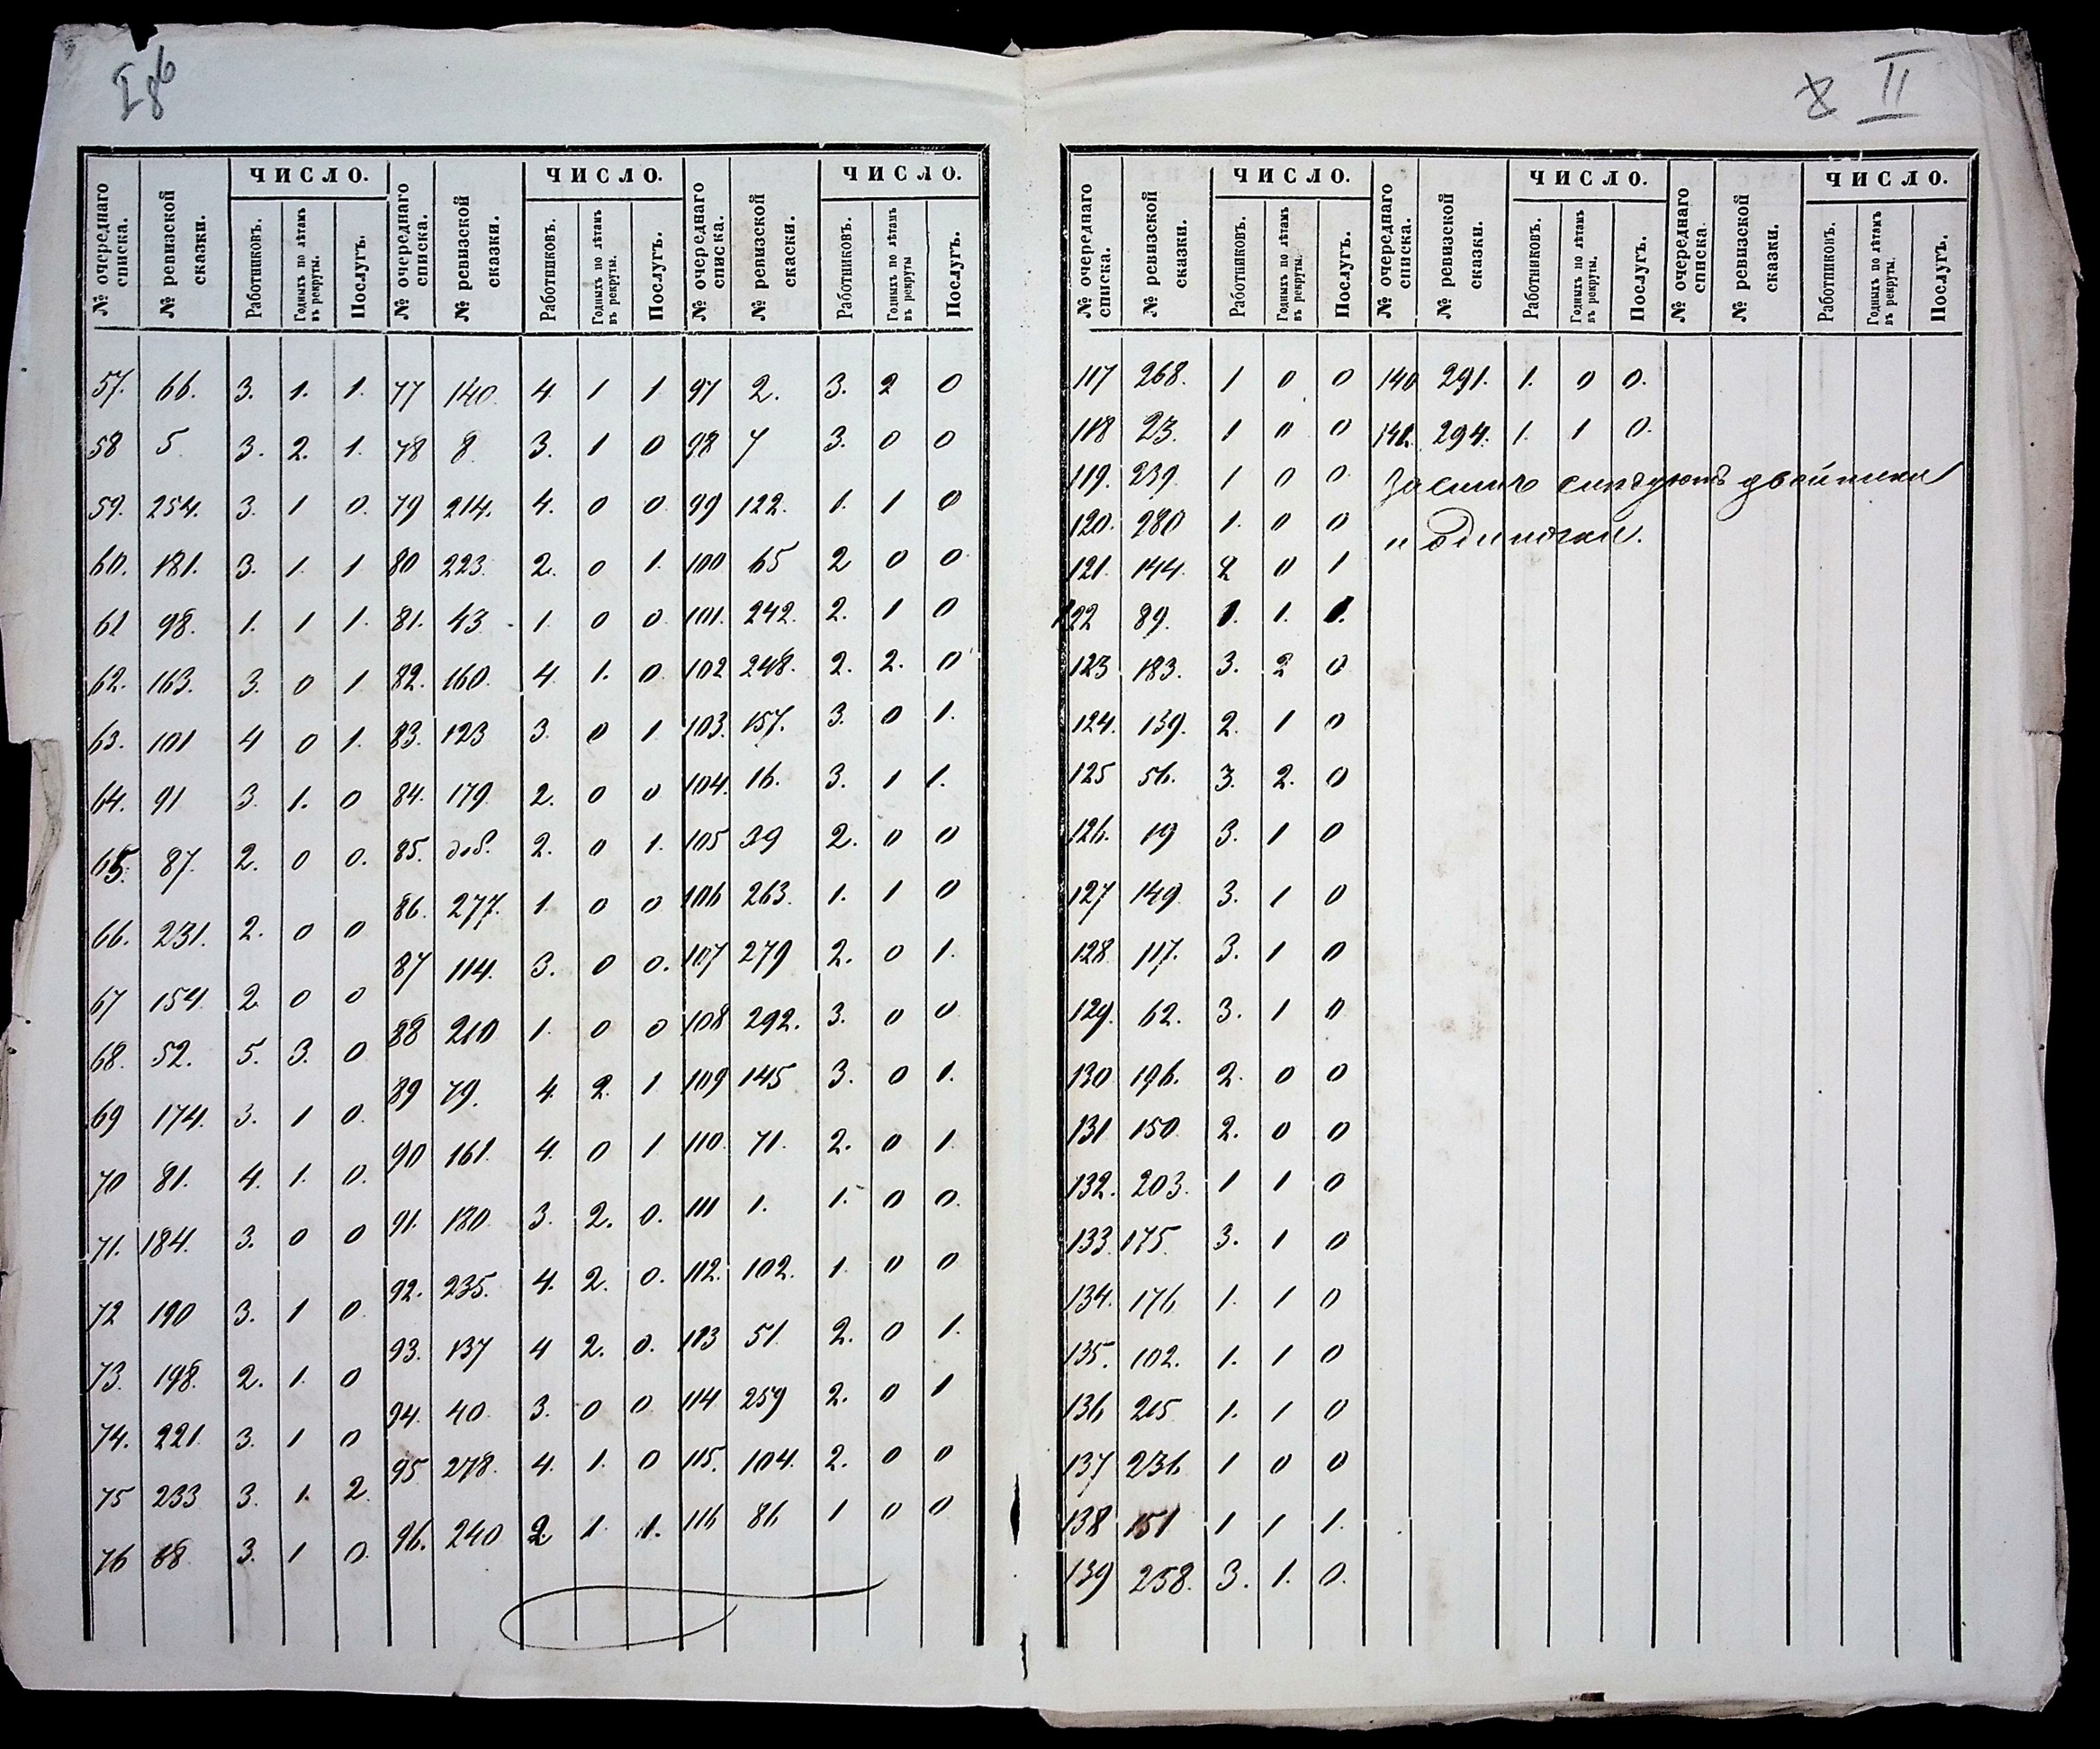 I 8б
ЧИСЛО. ЧИСЛО. ЧИСЛО.
№ очереднаго списка. № ревизской сказки. Работниковъ. Годныхъ по лѣтамъ въ рекруты. Послугъ. № очереднаго списка. № ревизской сказки. Работниковъ. Годныхъ по лѣтамъ въ рекруты. Послугъ. № очереднаго списка. № ревизской скаски. Работниковъ. Годныхъ по лѣтамъ въ рекруты Послугъ.
57. 66. 3. 1. 1. 77 140. 4. 1 1 97 2. 3. 2 0
58 5 3. 2. 1. 78 8 3. 1 0 98 7 3. 0 0
59. 254. 3. 1 0. 79 214. 4. 0 0 99 122. 1. 1 0
60. 181. 3. 1. 1 80 223. 2. 0 1. 100 65 2 0 0
61 98. 1. 1 1. 81. 43 1. 0 0 101. 242. 2. 1 0
62. 163. 3. 0 1 82. 160. 4. 1. 0. 102 248. 2. 2. 0
63. 101 4 0 1. 83. 123 3. 0 1 103. 157. 3. 0 1.
64. 91 3. 1. 0 84. 179. 2. 0 0 104. 16. 3. 1 1.
65. 87. 2. 0 0. 85. доб. 2. 0 1. 105 39 2. 0 0
66. 231. 2. 0 0 86. 277. 1. 0 0 106 263. 1. 1 0
67 154 2 0 0 87 114. 3. 0 0. 107 279 2. 0 1.
68. 52. 5. 3. 0 88 210 1. 0 0 108 292. 3. 0 0
69 174. 3. 1 0. 89 79. 4. 2. 1 109 145 3. 0 1.
70 81. 4. 1. 0. 90 161. 4. 0 1 110. 71. 2. 0 1.
71. 184. 3. 0 0 91. 180 3. 2. 0. 111 1. 1. 0 0.
72 190 3. 1 0 92. 235. 4. 2. 0. 112. 102. 1. 0 0
73. 198. 2. 1. 0 93. 137 4 2. 0. 113 51. 2. 0 1.
74. 221. 3. 1 0 94. 40 3. 0 0 114 259 2. 0 1
75 233 3. 1. 2. 95 278. 4. 1. 0 115. 104. 2. 0 0
76 88 3. 1 0. 96. 240 2. 1 1. 116 86 1 0 0
8 II
ЧИСЛО. ЧИСЛО. ЧИСЛО.
№ очереднаго списка. № ревизской сказки. Работниковъ. Годныхъ по лѣтамъ въ рекруты. Послугъ. № очереднаго списка. № ревизской сказки. Работниковъ. Годныхъ по лѣтамъ въ рекруты. Послугъ. № очереднаго списка. № ревизской сказки. Работниковъ. Годныхъ по лѣтамъ въ рекруты. Послугъ.
117 268. 1 0 0 140 291. 1. 0 0.
118 23. 1 0 0 141. 294. 1. 1 0.
119. 239. 1 0 0 За симъ слѣдуютъ двойники
120. 280 1. 0 0 и одиночки.
121. 144. 2 0 1
122 89. 1. 1. 1.
123 183. 3. 2 0
124. 139. 2. 1 0
125 56. 3. 2. 0
126. 19 3. 1 0
127 149 3. 1 0
128 117. 3. 1 0
129. 62. 3. 1 0
130 196. 2. 0 0
131 150. 2. 0 0
132. 203. 1 1 0
133. 175. 3. 1 0
134. 176 1. 1 0
135. 102. 1. 1 0
136 215 1. 1 0
137 236 1 0 0
138 151 1 1 1.
139 258. 3. 1. 0.